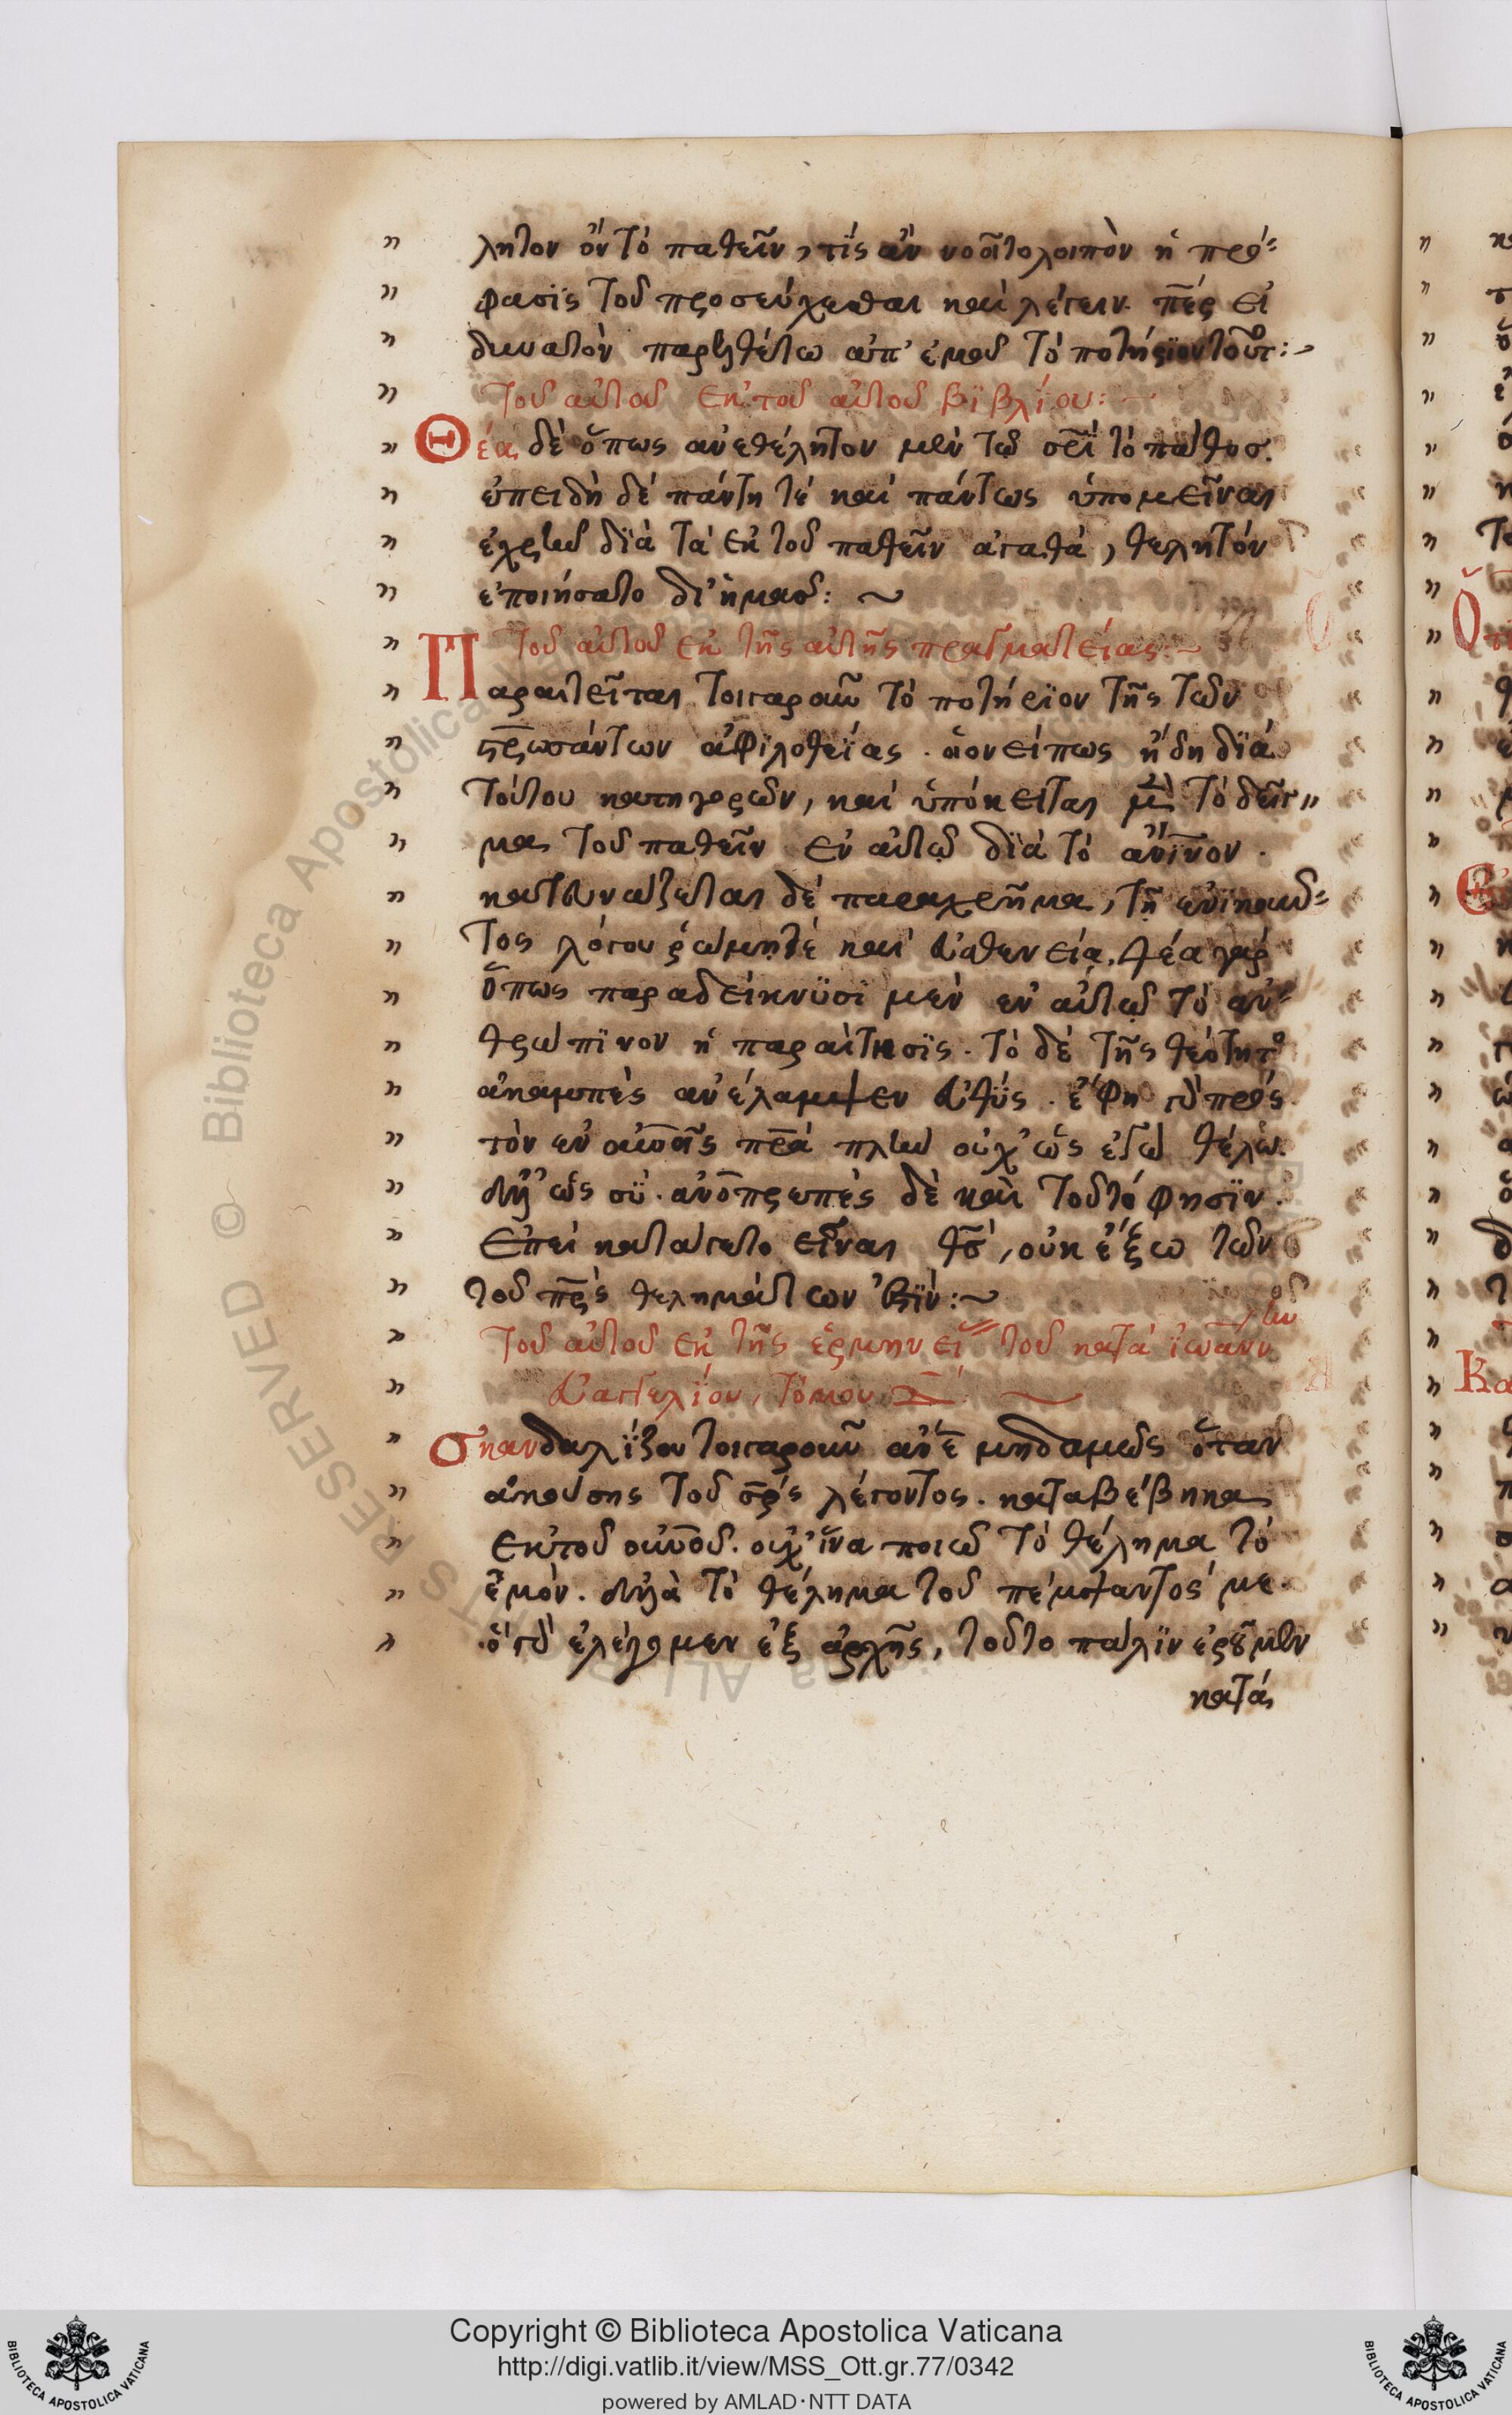 λητον ὂν τὸ παθεῖν, τίς ἂν νοοῖτο λοιπὸν ἡ πρό-
φασις τοῦ προσεύχεσθαι καὶ λέγειν. περ εἰ
δυνατὸν παρελθέτω ἀπ' ἐμοῦ τὸ ποτήριον τοῦτ:
Τοῦ αὐτοῦ ἐκ τοῦ αὐτοῦ βιβλίου:
Θέα δὲ ὅπως ἀνεθέλητον μὲν τῷ σρι τὸ πάθος.
ἐπειδὴ δὲ πάντη τὲ καὶ πάντως ὑπομεῖναι
ἐχρῆν διὰ τὰ ἐκ τοῦ παθεῖν ἀγαθὰ, θελητὸν
ἐποιήσατο δι' ἡμᾶς:
Τοῦ αὐτοῦ ἐκ τῆς αὐτῆς πραγματείας:
Παραιτεῖται τοιγαροῦν τὸ ποτήριον τῆς τῶν
σρωσάντων ἀφιλοθεΐας. μονονείπως ἤδη διὰ
τούτου κατηγορῶν, καὶ ὑπόκειται μὲν τὸ δεῖγ-
μα τοῦ παθεῖν ἐν αὐτῷ διὰ τὸ ἀνινον.
κατευνάζεται δὲ παραχρῆμα, τῇ ἐνοικοῦν-
τος λόγου ῥώμη τὲ καὶ εὐσθενεία. θέα γὰρ
ὅπως παραδείκνυσι μὲν ἐν αὐτῷ τὸ ἀν-
θρώπινον ἡ παραίτησις. τὸ δὲ τῆς θεότητος
ἀκαμπὲς ἀνέλαμψεν εὐθύς. ἔφη γὰρ πρὸς
τὸν ἐν οὐνοῖς πρα πλὴν οὐχ' ὡς ἐγὼ θέλω.
ἀλλ' ὡς σύ. ἀνοπρεπὲς δὲ καὶ τοῦτό φησιν.
Ἐπεὶ κατάγετο εἶναι θς, οὐκ ἔξω τῶν
τοῦ πρς θελημάτων ἐστίν:
Τοῦ αὐτοῦ ἐκ τῆς ἑρμηνεί τοῦ κατὰ ἰωάνν
εὐαγγελίου, τόμου
Σκανδαλίζου τοιγαροῦν ἀνε μηδαμῶς ὅταν
ἀκούσης τοῦ σρς λέγοντος. καταβέβηκα
ἐκ τοῦ οὐνοῦ. οὐχ' ἵνα ποιῶ τὸ θέλημα τὸ
ἐμόν. ἀλλὰ τὸ θέλημα τοῦ πέμψαντός με.
ὃ γὰρ ἐλέγομεν ἐξ ἀρχῆς, τοῦτο πάλιν ἐροῦμεν
κατὰ
Copyright © Biblioteca Apostolica Vaticana
http://digi.vatlib.it/view/MSS_Ott.gr.77/0342
powered by AMLAD·NTT DATA